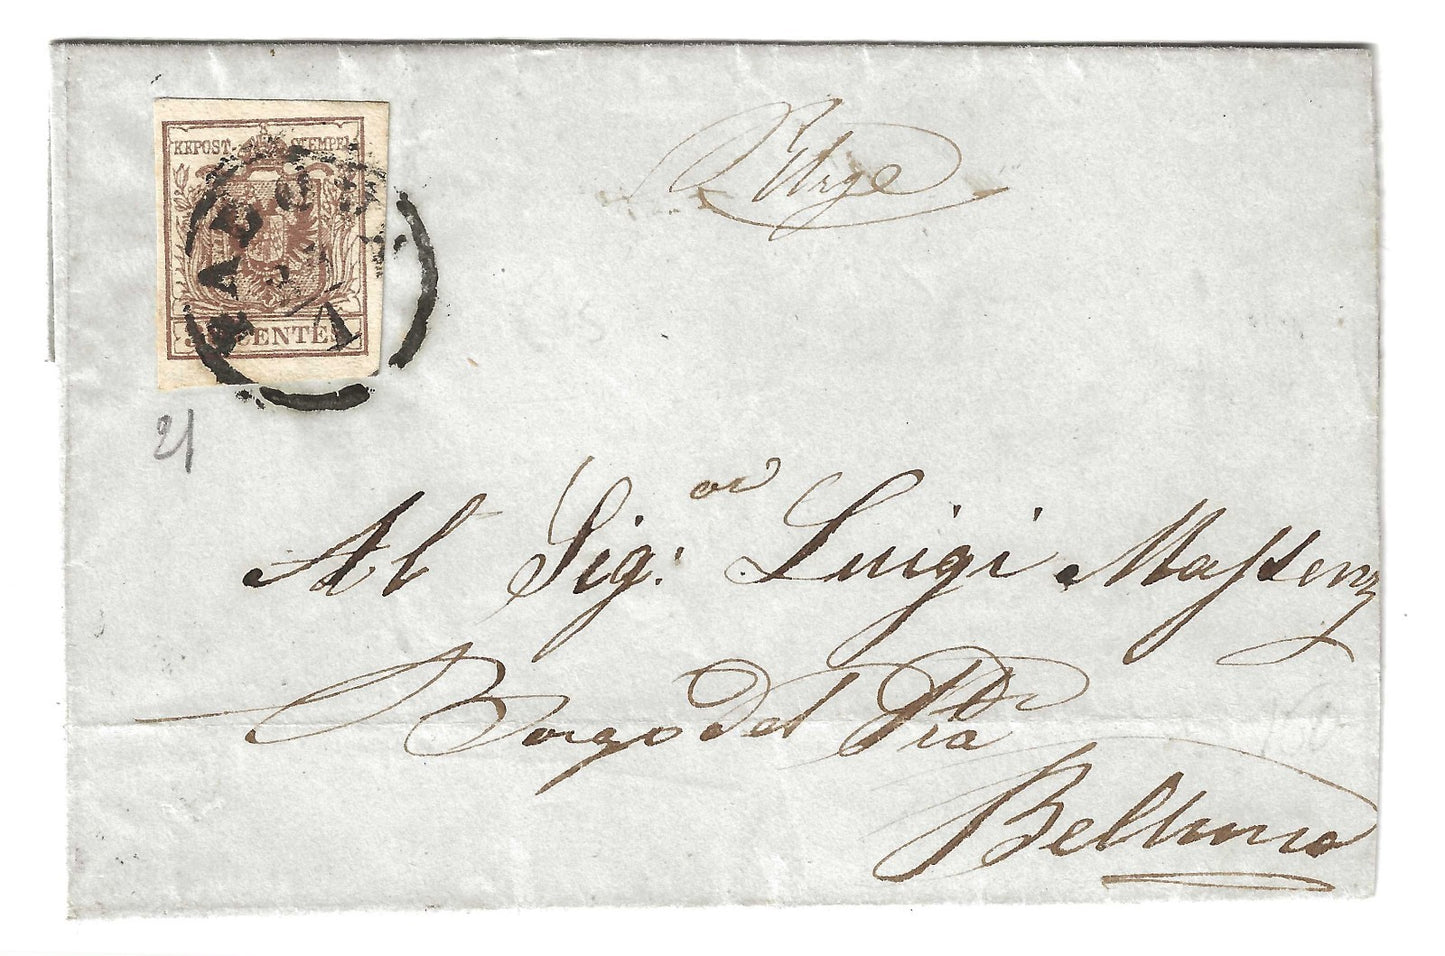 KKPOST-STEMPEL
CENTES
Urge
21
Al Sig.or Luigi Massenz
Borgo del Pra
Belluno